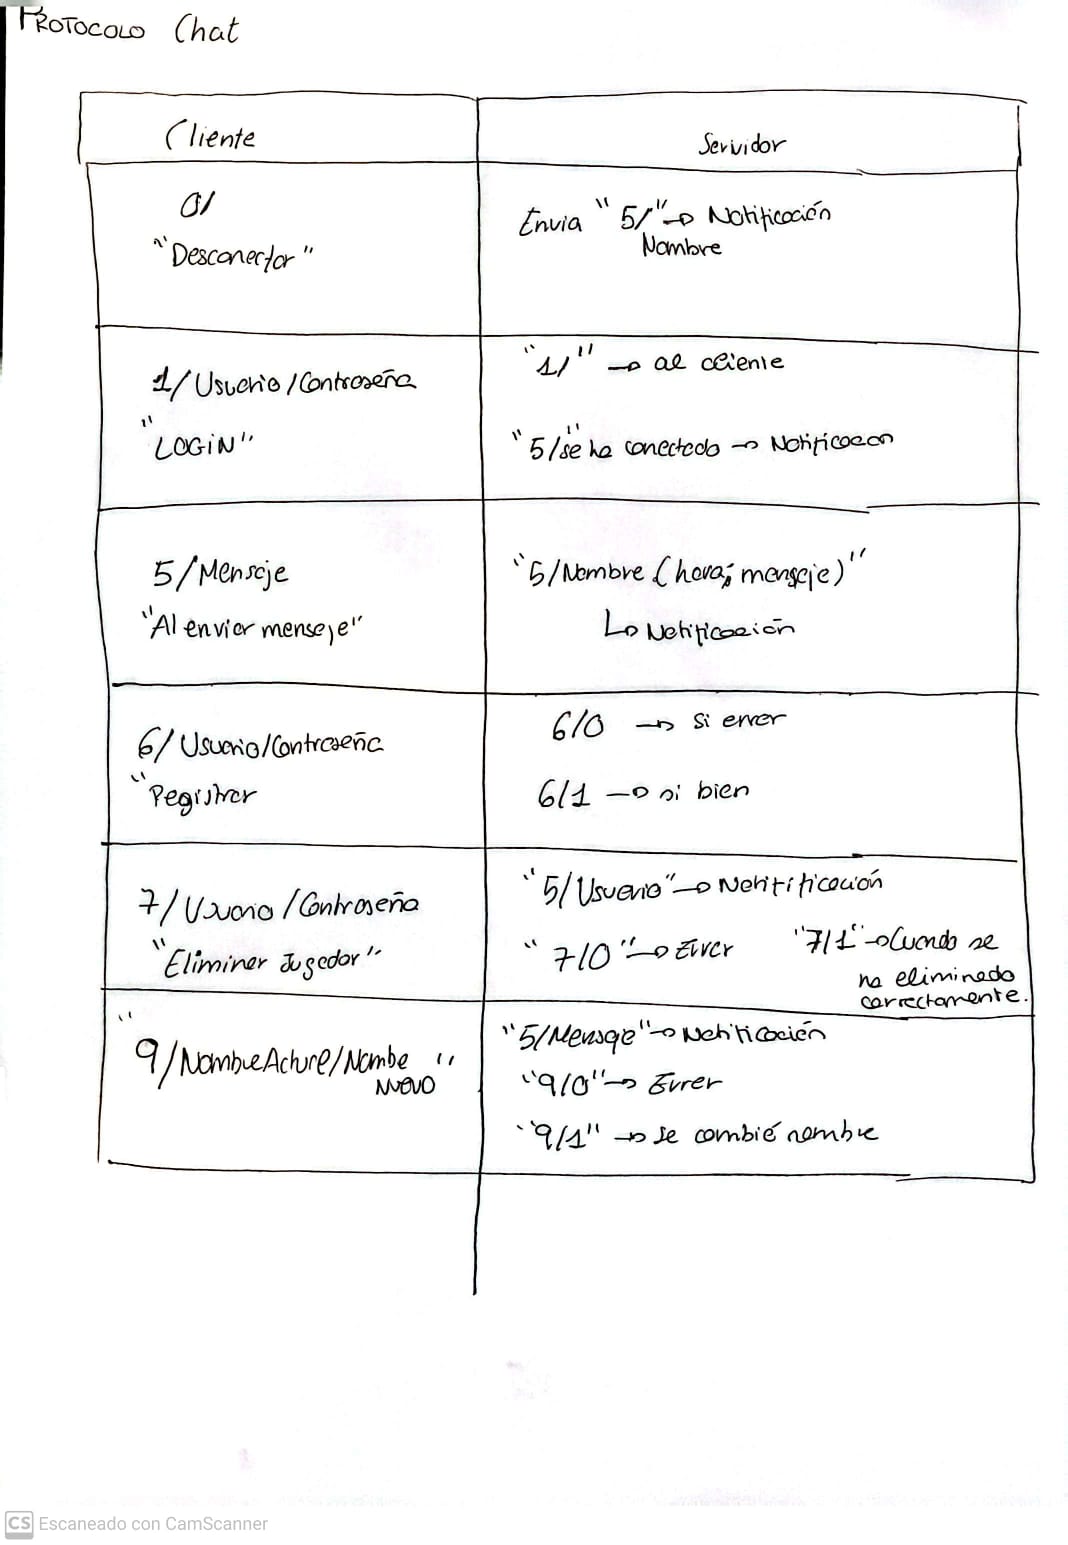 PROTOCOLO Chat
Cliente
Servidor
0/
"Desconectar"
Envia "5/" → Notificación
Nombre
1/Usuario/Contraseña
"LOGIN"
"1/" → al cliente
"5/se ha conectado" → Notificacion
5/Mensaje
"Al enviar mensaje"
"5/Nombre (hora; mensaje)"
↳ Notificación
6/Usuario/Contraseña
"Registrar
6/0 → si error
6/1 → si bien
7/Usuario/Contraseña
"Eliminar Jugador"
"5/Usuario" → Notitificación
"7/0" → Error "7/1" → Cuando se
ha eliminado
correctamente.
"
9/NombreActual/Nombe "
NUEVO
"5/Mensaje" → Notificación
"9/0" → Error
"9/1" → se cambié nombre
CS Escaneado con CamScanner